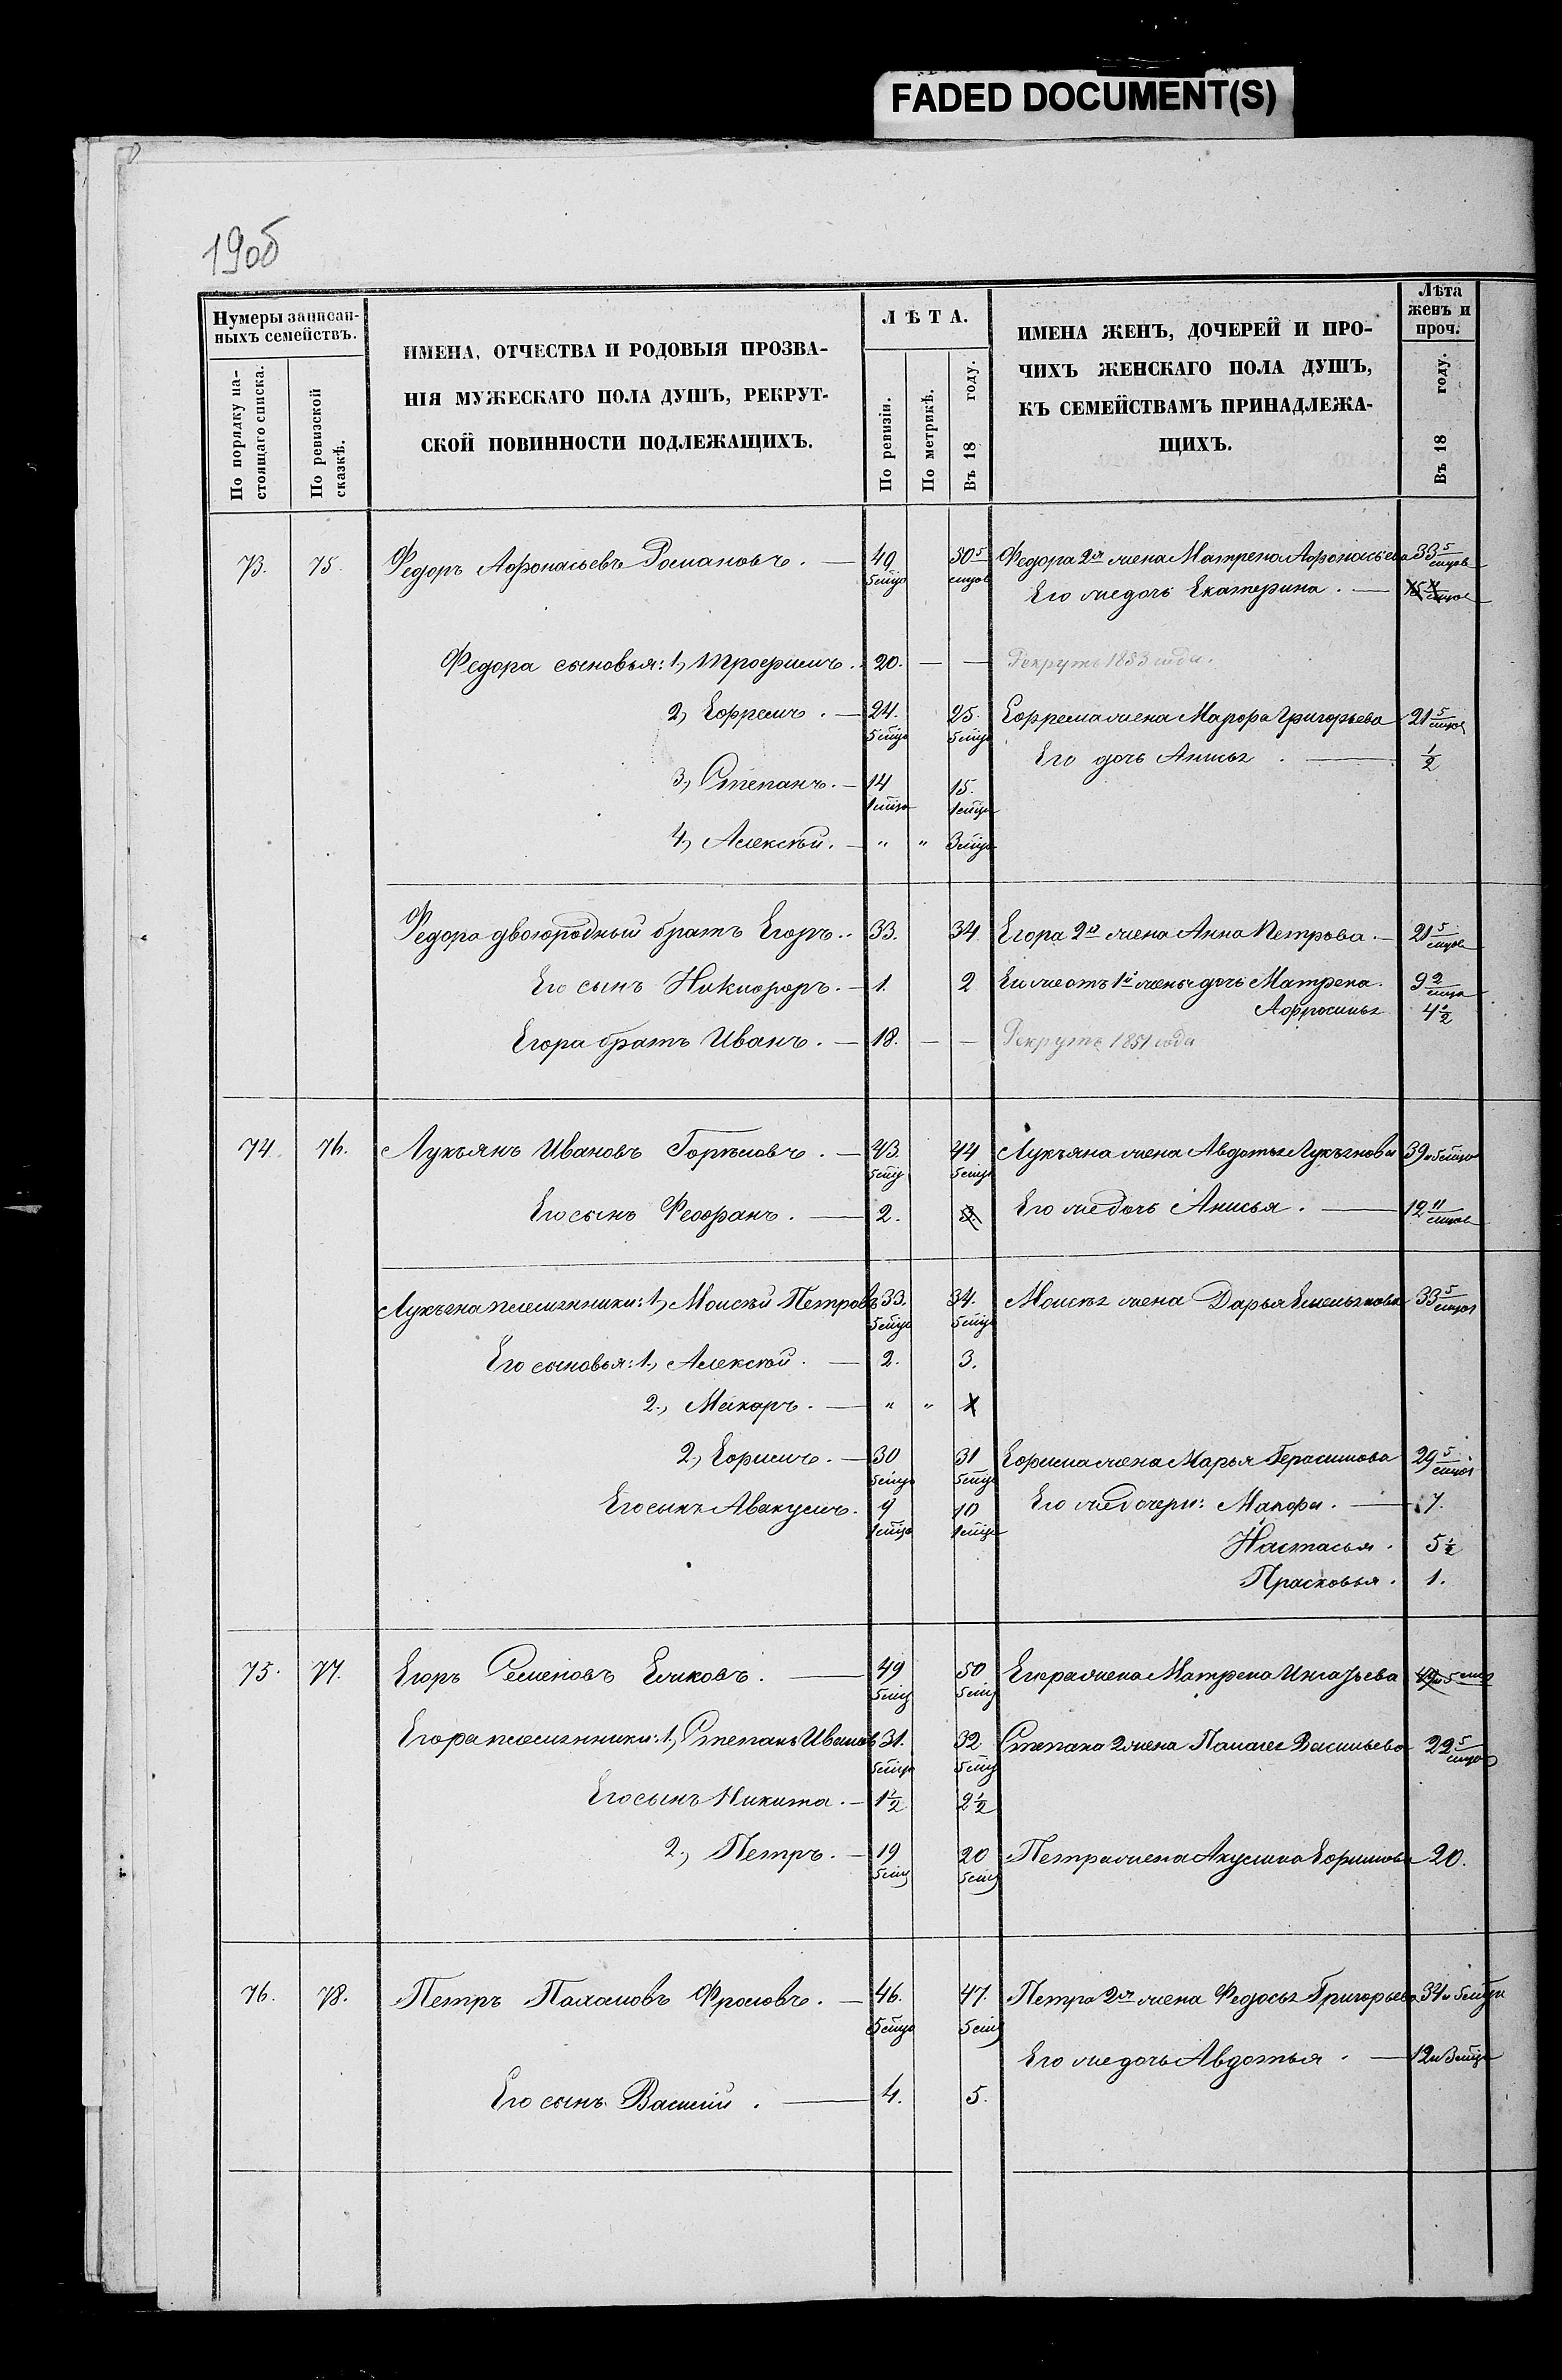 FADED DOCUMENT(S)
190об
Нумеры записан-
ныхъ семействъ.
По порядку на-
стоящаго списка.
По ревизской
сказкѣ.
ИМЕНА, ОТЧЕСТВА И РОДОВЫЯ ПРОЗВА-
НІЯ МУЖЕСКАГО ПОЛА ДУШЪ, РЕКРУТ-
СКОЙ ПОВИННОСТИ ПОДЛЕЖАЩИХЪ.
ЛѢТА.
По ревизіи.
По метрикѣ.
Въ 18 году.
ИМЕНА ЖЕНЪ, ДОЧЕРЕЙ И ПРО-
ЧИХЪ ЖЕНСКАГО ПОЛА ДУШЪ,
КЪ СЕМЕЙСТВАМЪ ПРИНАДЛЕЖА-
ЩИХЪ.
Лѣта
женъ и
проч.
Въ 18 году.
73. 75. Федоръ Афонасьевъ Романовъ. — 49 50 5 Федора 2я жена Матрена Афонасьева 33 5
5 мцо мцов мцов
Его же дочь Екатерина. —
Федора сыновья: 1, Трофимъ. 20. — — Рекрутъ 1853 года.
2, Ефремъ. — 24. 25. Ефрема жена Марфа Григорьева 21 5
5 мцо 5 мцо мцов
Его дочь Анисья. — 1/2
3, Степанъ. — 14 15.
1 мцо 1 мцо
4, Алексѣй. — " " 3 мцо
Федора двоюродный братъ Егоръ. 33. 34. Егора 2я жена Анна Петрова. — 21 5
мцов
Его сынъ Никифоръ. — 1. 2 Его же отъ 1й жены дочь Матрена. 9 2
мцо
Афросинья 4 1/2
Егора братъ Иванъ. — 18. — — Рекрутъ 1851 года
74. 76. Лукьянъ Ивановъ Горѣловъ. — 43. 44 Лукьяна жена Авдотья Лукьянова 39 и 5 мцо
5 мцо 5 мцо
Его сынъ Феофанъ. — 2. 3. Его же дочь Анисья. — 12 11
мцов
Лукьяна племянники: 1, Моисѣй Петровъ 33. 34. Моисѣя жена Дарья Емельянова 33 5
5 мцо 5 мцо мцов
Его сыновья: 1., Алексѣй. — 2. 3.
2., Макаръ. — " "
2., Ефимъ. — 30 31 Ефима жена Марья Герасимова 29 5
5 мцо 5 мцо мцов
Его сынъ Авакумъ. 9 10 Его же дочери: Марфа. — 7.
1 мцо 1 мцо
Настасья. 5 1/2
Прасковья. 1.
75. 77. Егоръ Семеновъ Ежиковъ. — 49 50 Егора жена Матрена Игнатьева 49 и 5 мцо
5 мц 5 мц
Егора племянники: 1, Степанъ Ивановъ 31. 32 Степана 2 жена Палагея Васильева 22 5
5 мцо 5 мц мцов
Его сынъ Никита. — 1 1/2 2 1/2
2., Петръ. — 19 20 Петра жена Акулина Ефимова 20.
5 мц 5 мц
76. 78. Петръ Пахомовъ Фроловъ. — 46. 47. Петра 2я жена Федосья Григорьева 34 и 5 мцо
5 мцо 5 мц
Его же дочь Авдотья. — 12 и 3 мцо
Его сынъ Василій. — 4. 5.